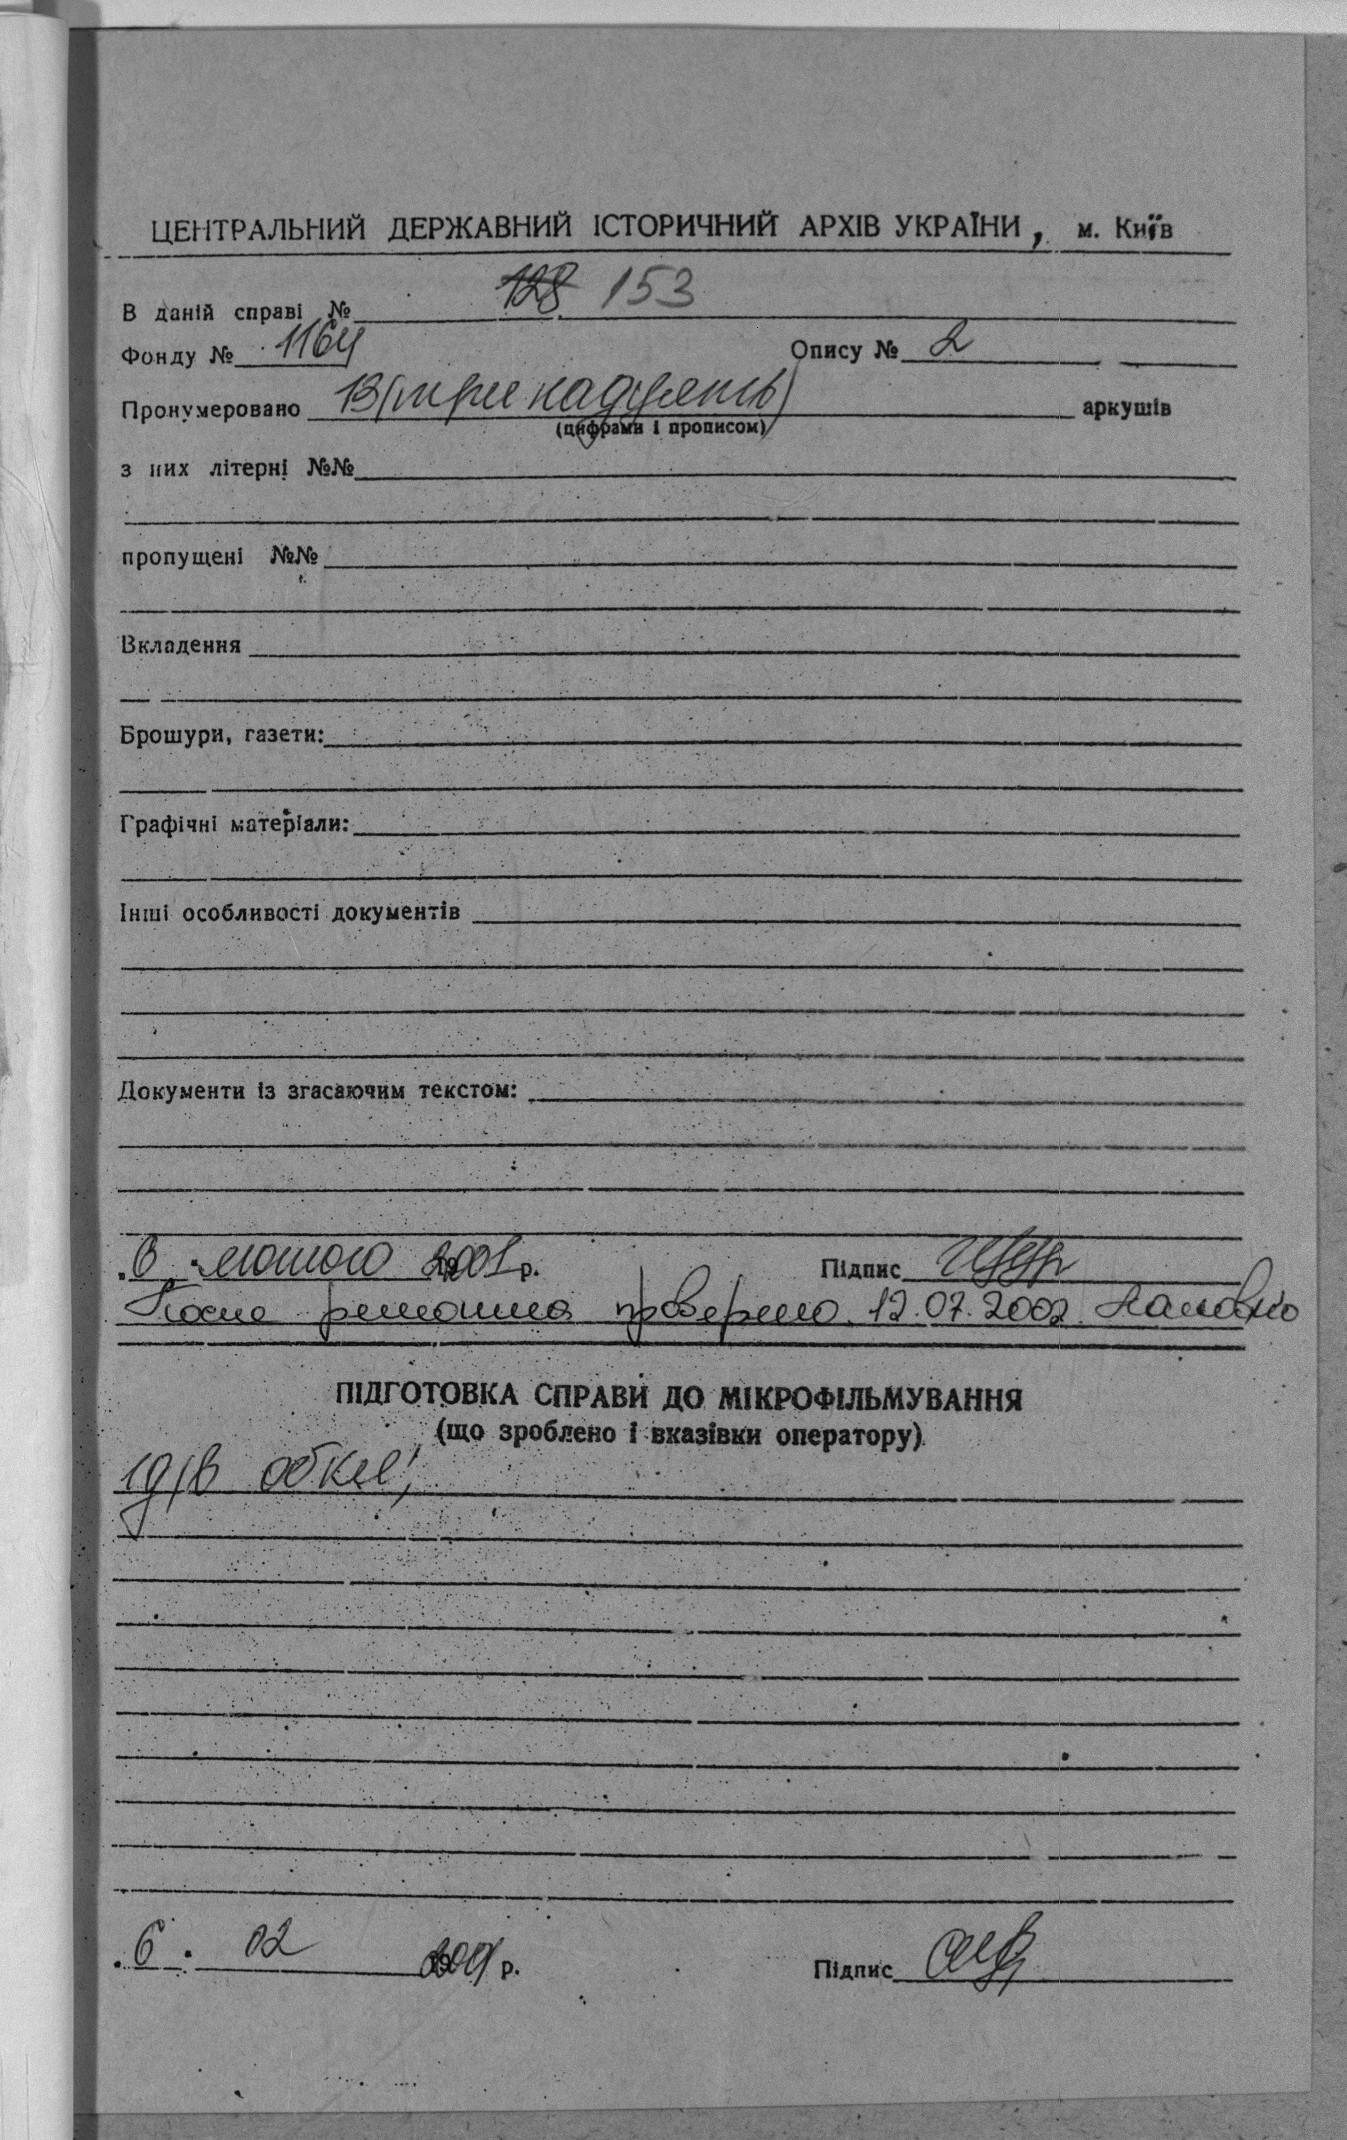 ЦЕНТРАЛЬНИЙ ДЕРЖАВНИЙ ІСТОРИЧНИЙ АРХІВ УКРАЇНИ, м. Київ
В даній справі № 128 153
Фонду № 1164 Опису № 2
Пронумеровано 13 (тринадцять) аркушів
(цифрами і прописом)
з них літерні №№
пропущені №№
Вкладення
Брошури, газети:
Графічні матеріали:
Інші особливості документів
Документи із згасаючим текстом:
6 лютого 2001 р. Підпис
После ремонта проверено 12.07.2002
ПІДГОТОВКА СПРАВИ ДО МІКРОФІЛЬМУВАННЯ
(що зроблено і вказівки оператору)
6. 02 2001 р. Підпис